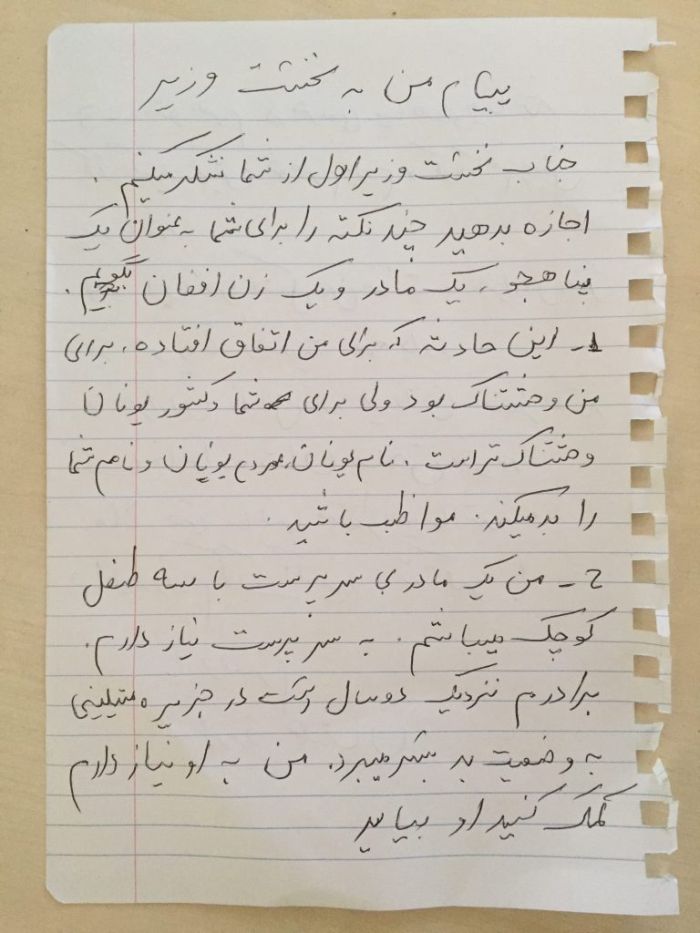 پیام من به نخست وزیر
جناب نخست وزیر اول از شما تشکر میکنم.
اجازه بدهید چند نکته را برای شما به عنوان یک
پناهجو، یک مادر و یک زن افغان بگویم.
1- این حادثه که برای من اتفاق افتاده، برای
من وحشتناک بود ولی برای شما و کشور یونان
وحشتناک تر است. نام یونان، مردم یونان و نام شما
را بد میکند. مواظب باشید.
2- من یک مادر بی سرپرست با سه طفل
کوچک میباشم. به سرپرست نیاز دارم.
برادرم نزدیک دوسال است در جزیره میتیلینی
به وضعیت بد بسر میبرد. من به او نیاز دارم
کمک کنید او بیاید